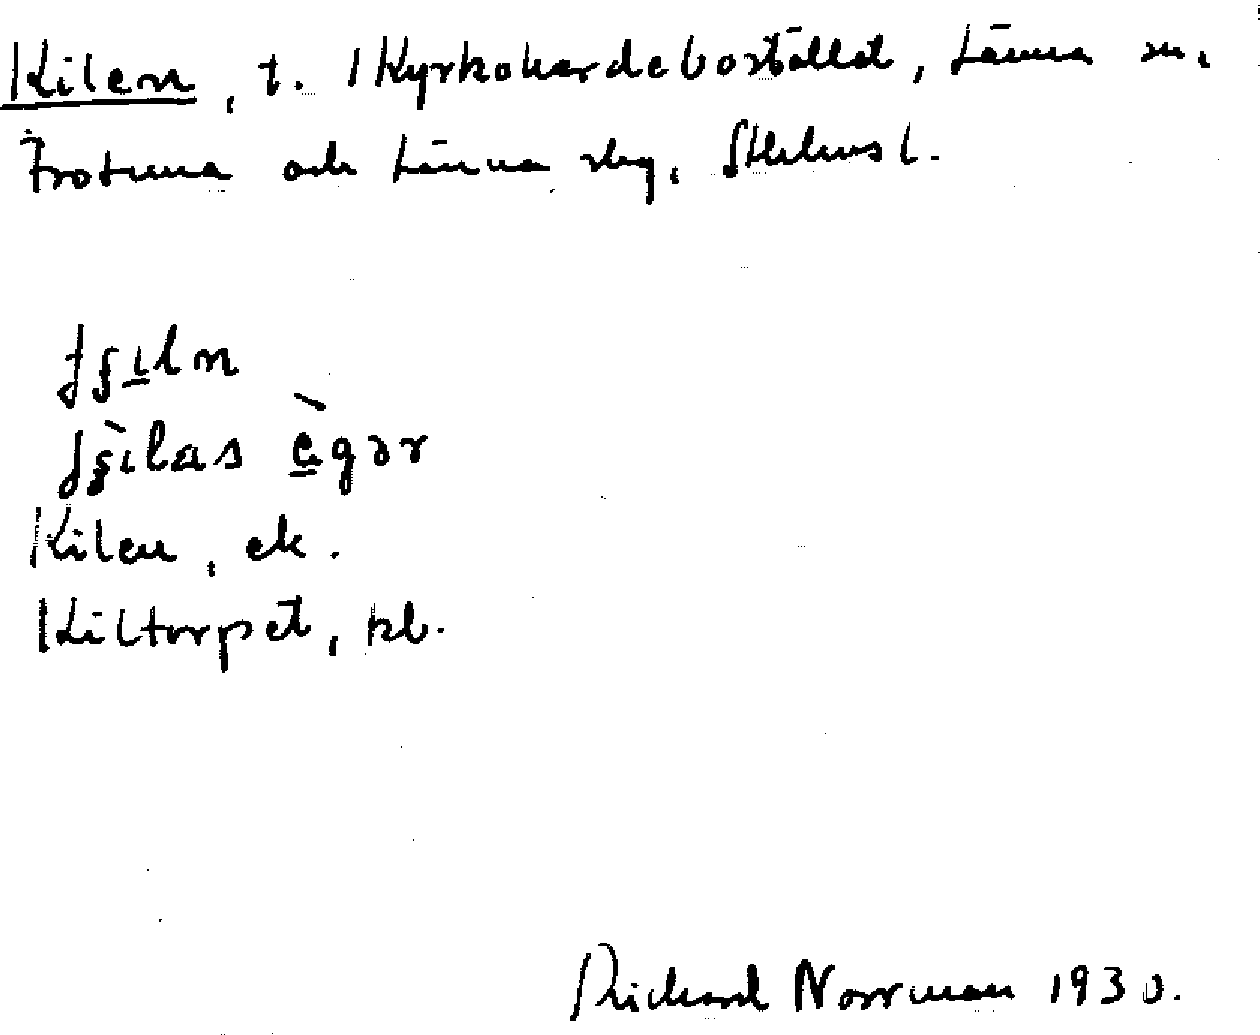 Kilen, t. Kyrkoherdebostället, Länna sn.
Frötuna och Länna slg, Sthlms l.
Kilen, ek.
Kiltorpet, kb.
Richard Norrman 1930.